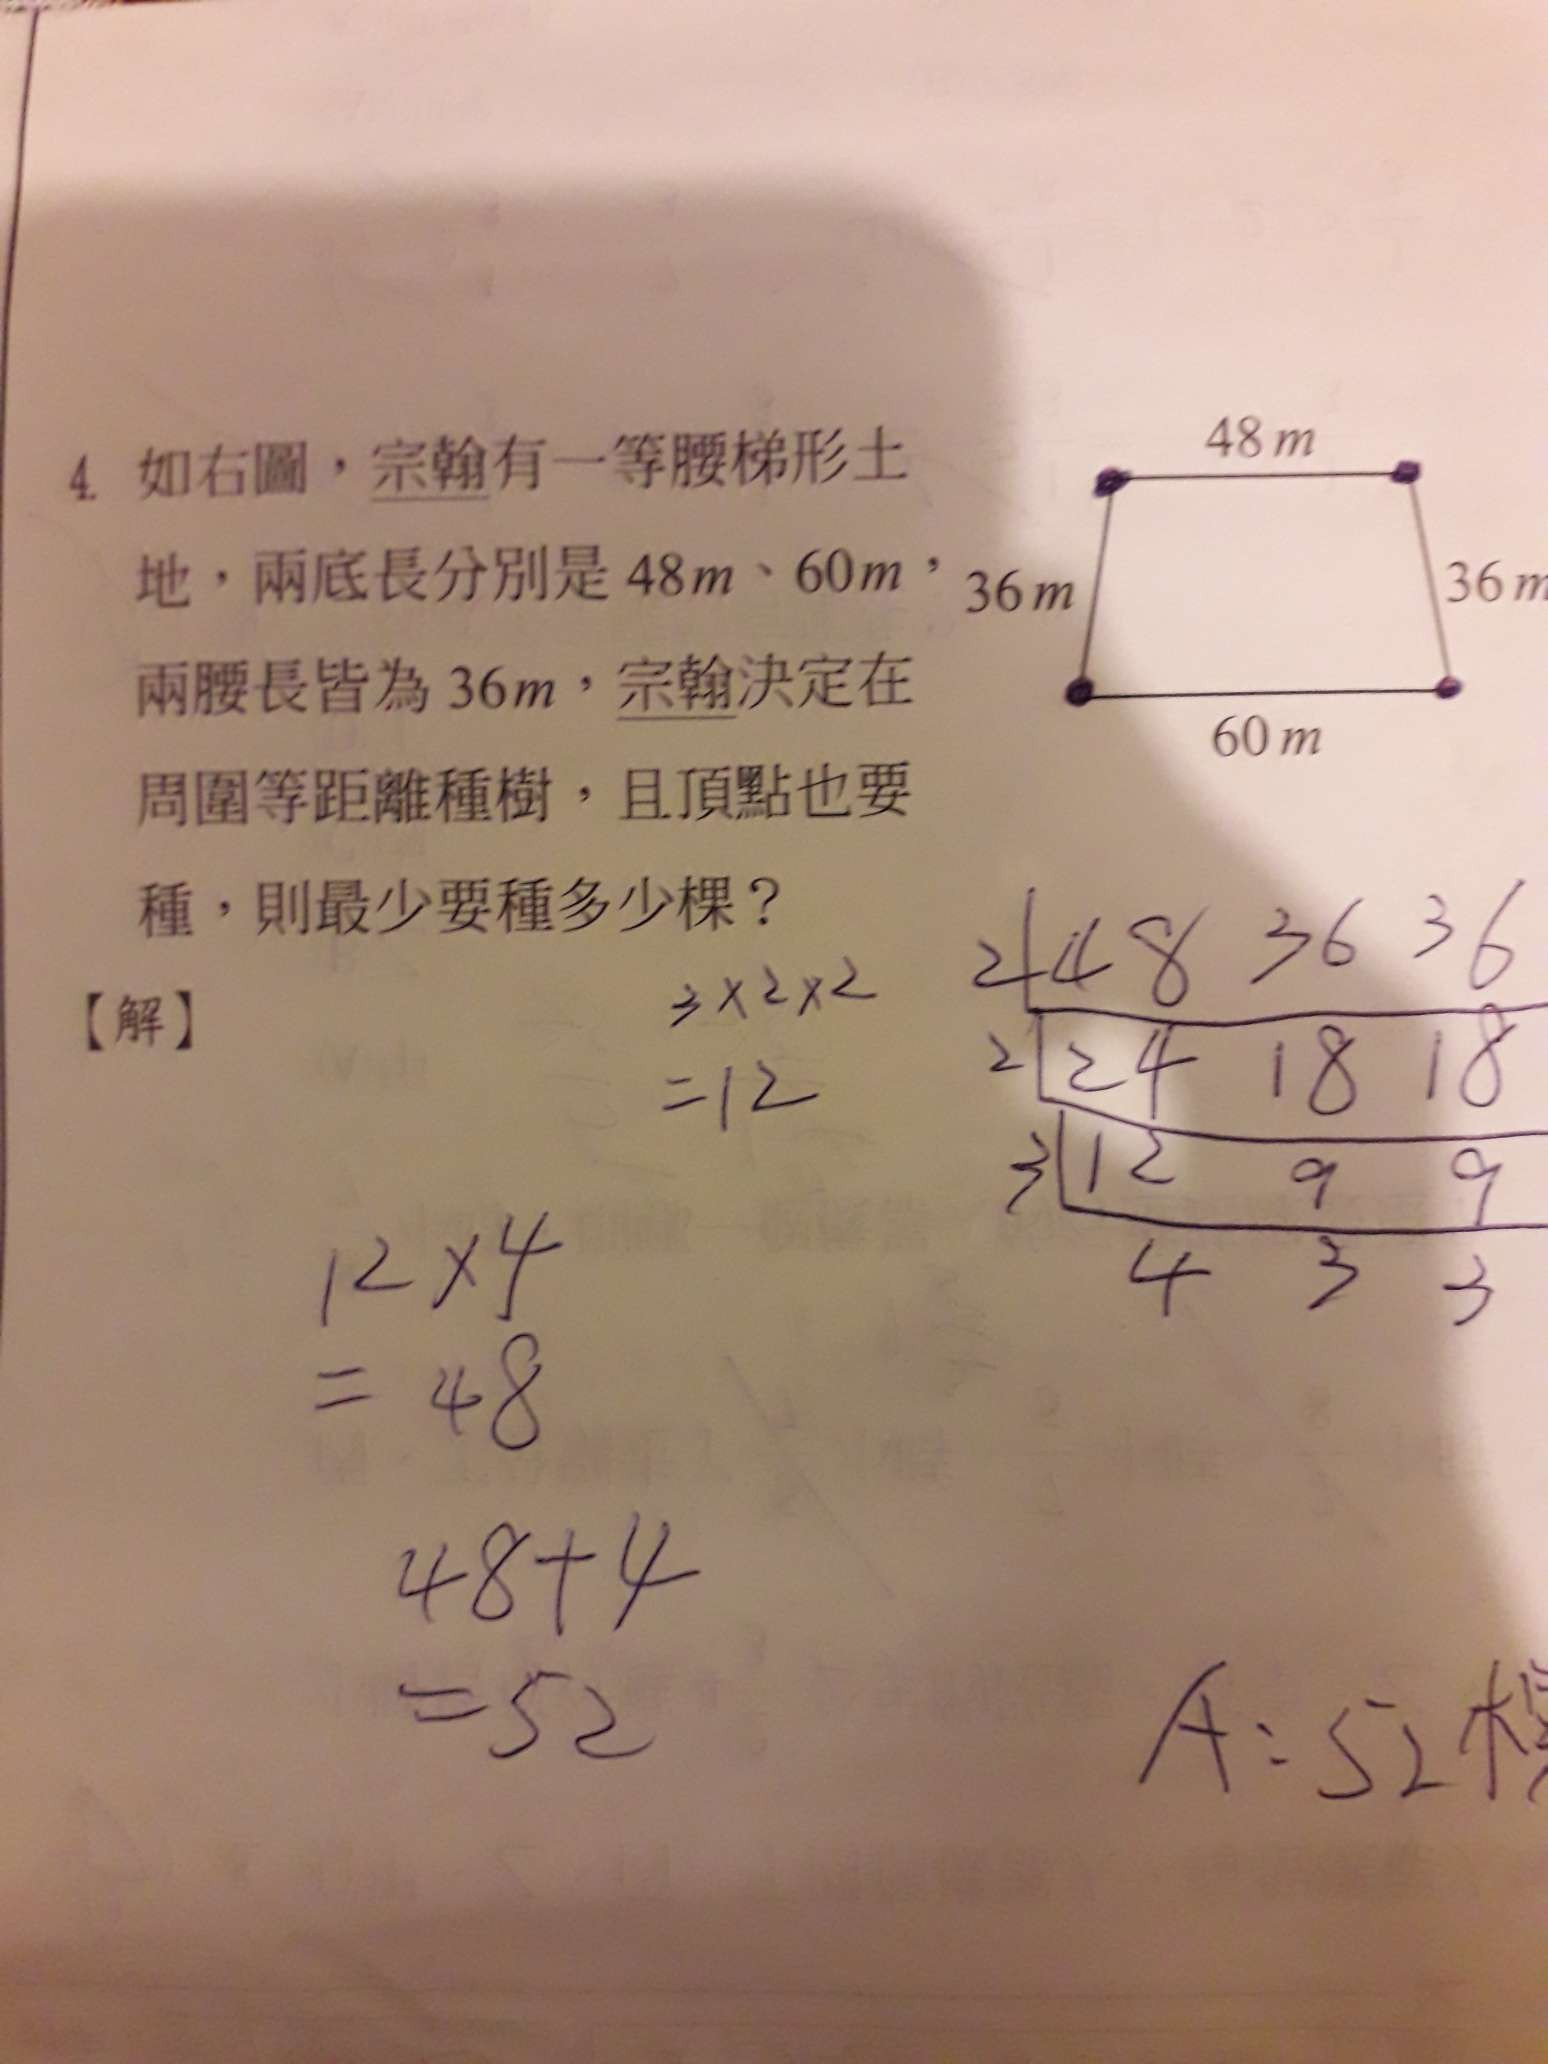 48m
4. 如右圖，宗翰有一等腰梯形土
地，兩底長分別是48m、60m，
36m
36m
兩腰長皆為36m，宗翰決定在
60m
周圍等距離種樹，且頂點也要
種，則最少要種多少棵？
【解】
3×2×2
=12
2 48 36 36
2 24 18 18
3 12 9 9
4 3 3
12×4
=48
48+4
=52
A:52棵